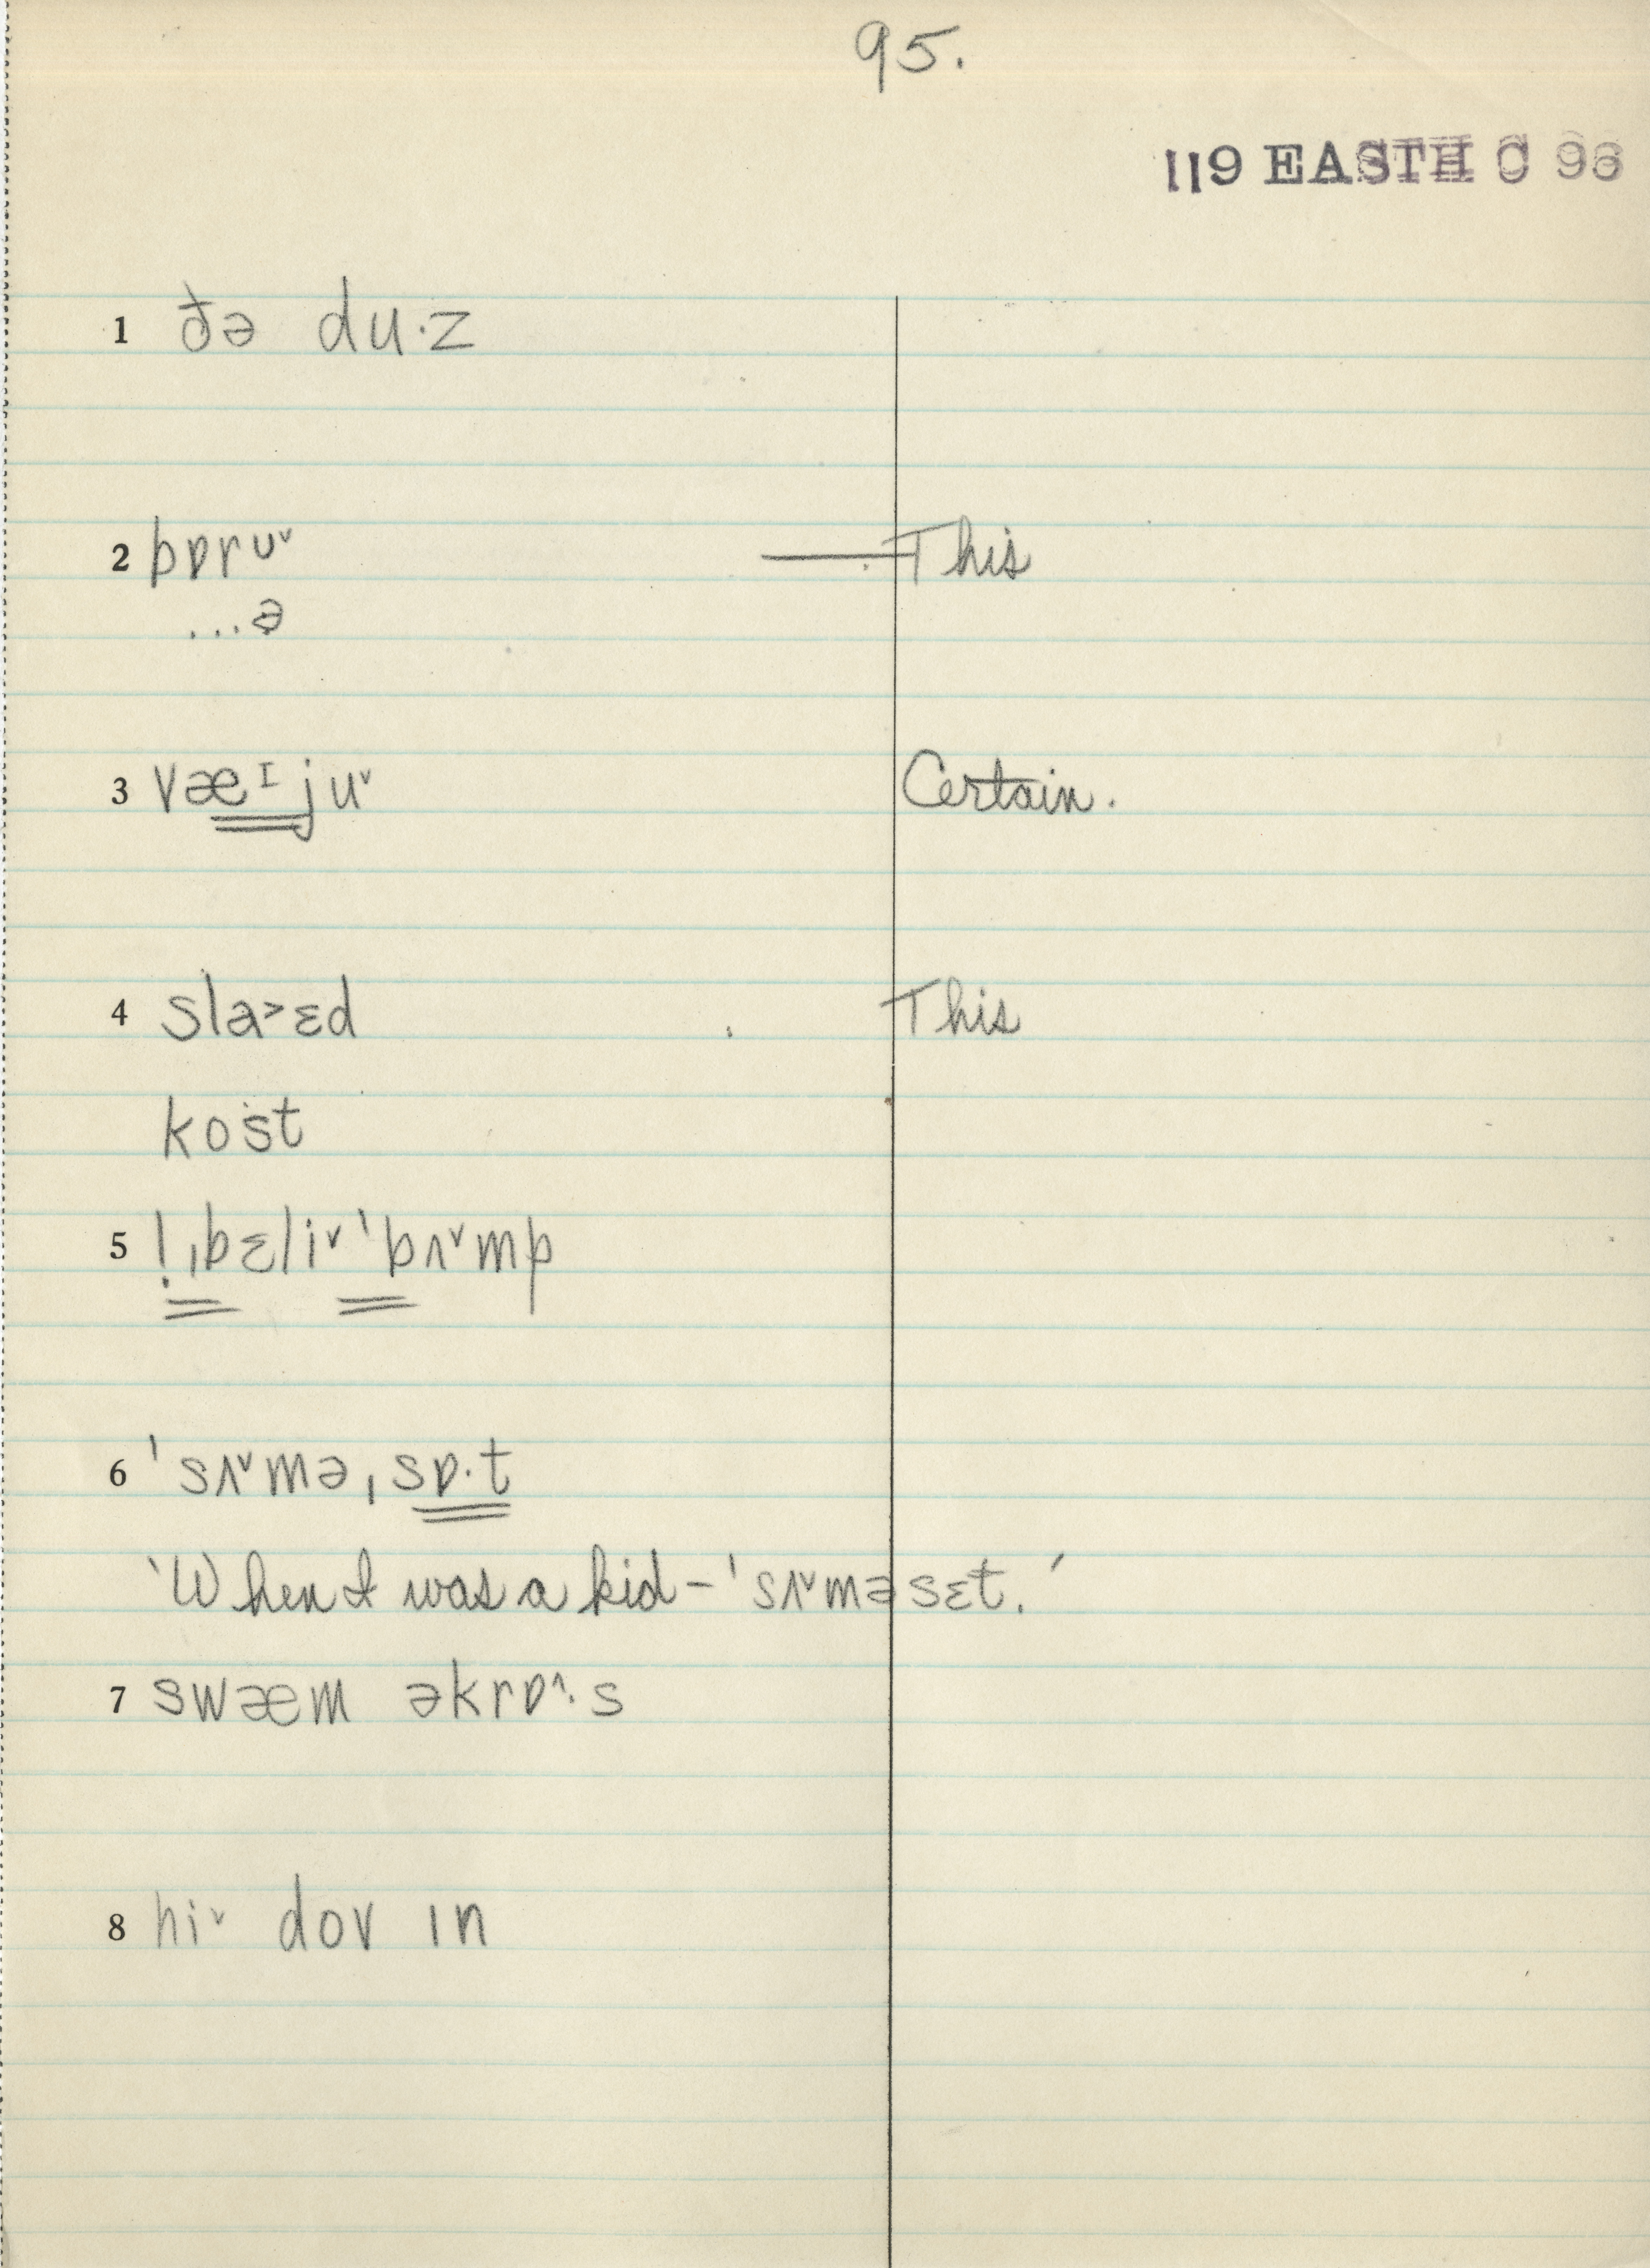 95.
119 EASTH C 96
1 ðə du·z
2 bɒrᴜ˅ —This
...ə
3 væɪju˅ Certain.
4 sla˃ɛd This
kost
5 !ˌbɛli˅ˈbʌ˅mp
6 ˈsʌ˅məˌsɒ·t
'When I was a kid – ˈsʌ˅məsɛt.'
7 swæm əkrɒ^·s
8 hi˅ dov ɪn